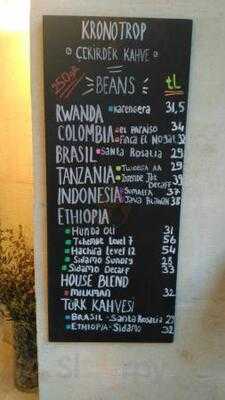 KRONOTROP
ÇEKİRDEK KAHVE
250gr.
BEANS tL
RWANDA Karengera 31,5
COLOMBIA el PARAISO 34
Finca El Nogal 32
BRASIL Santa Rosalia 29
TANZANIA AA 29
Decaff 39
INDONESIA SUMATRA 37
JAVA 38
ETHIOPIA
Hunda Oli 31
Tchembe Level 7 56
Hachira Level 12 54
Sidamo Sundry 28
Sidamo Decaff 33
HOUSE BLEND
MILKMAN 32
TÜRK KAHVESİ
BRASIL - Santa Rosalia 29
ETHIOPIA - Sidamo 32